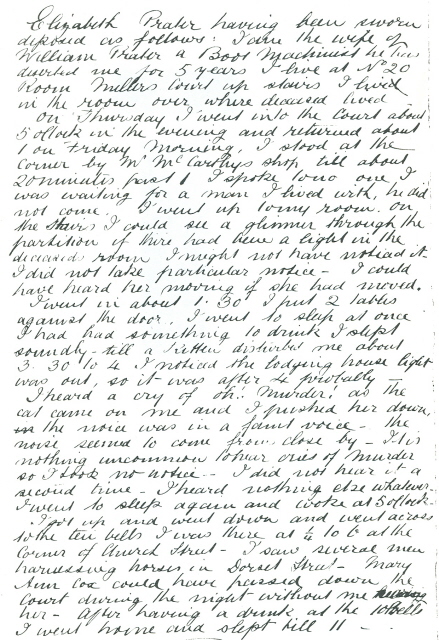 Elizabeth Prater having been sworn
deposed as follows: I am the wife of
William Prater a Boot Machinist he has
deserted me for 5 years I live at No 20
Room Millers Court up stairs I lived
in the room over where deceased lived -
On Thursday I went into the Court about
5 oclock in the evening and returned about
1 on Friday Morning, I stood at the
corner by Mr McCarthys shop till about
20 minutes past 1 I spoke to no one I
was waiting for a man I lived with, he did
not come. I went up to my room. On
the stairs I could see a glimmer through the
partition if there had been a light in the
deceaseds room I might not have noticed it.
I did not take particular notice - I could
have heard her moving if she had moved.
I went in about 1.30 I put 2 tables
against the door. I went to sleep at once
I had had something to drink I slept
soundly till a kitten disturbed me about
3.30 to 4. I noticed the lodging house light
was out, so it was after 4 probably -
I heard a cry of oh! Murder! as the
cat came on me and I pushed her down,
the noice was in a faint voice - the
noise seemed to come from close by - It is
nothing uncommon to hear cries of murder
so I took no notice - I did not hear it a
second time - I heard nothing else whatever
I went to sleep again and woke at 5 oclock -
I got up and went down and went across
to the ten bells I was there at ¼ to 6 at the
Corner of Church Street - I saw several men
harnessing horses in Dorset Street - Mary
Ann Cox could have passed down the
Court during the night without me hearing
her - after having a drink at the 10 bells
I went home and slept till 11 -